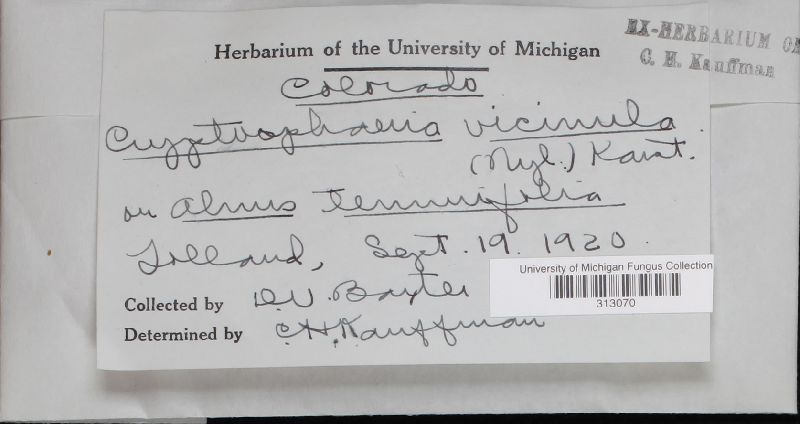 EX-HERBARIUM OF
C. H. Kauffman
Herbarium of the University of Michigan
Colorado
Cryptosphaeria vicinula
(Nyl.) Karst.
on Alnus tenuifolia
Tolland, Sept. 19. 1920.
University of Michigan Fungus Collection
313070
Collected by D.V. Baxter
Determined by C.H. Kauffman